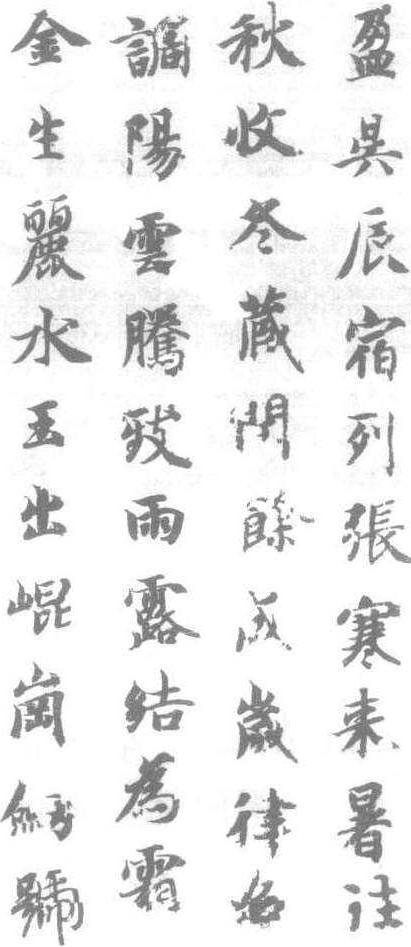 盈昃辰宿列張寒来暑往
秋收冬蔵閏餘成歲律召
調陽雲騰致雨露結為霜
金生麗水玉出崐崗劎號